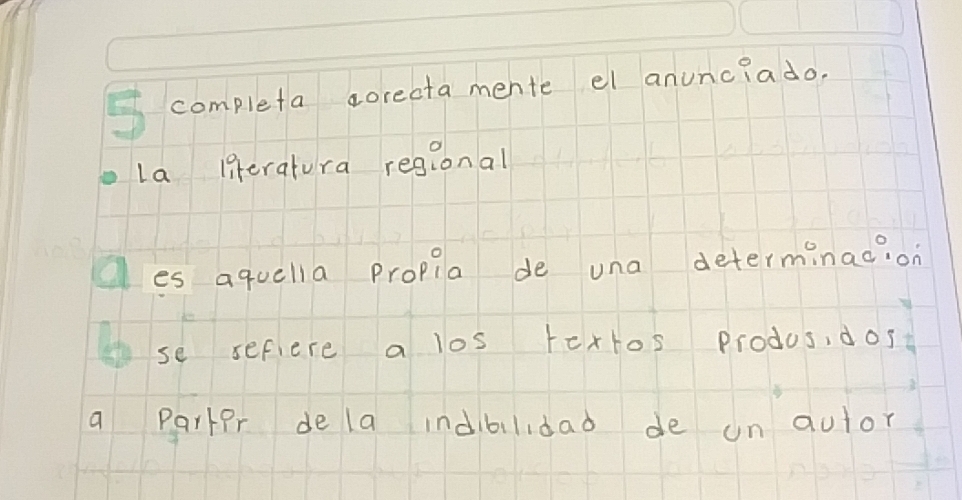 5 completa corectamente el anunciado.
• la literatura regional
a es aquella propia de una determinacion
b se refiere a los textos produsidos
a partir de la indibilidad de un autor